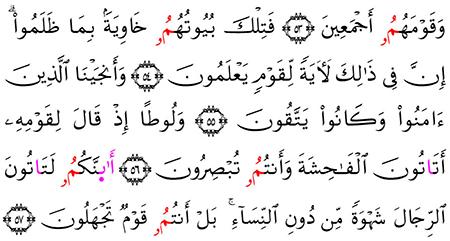 وَقَوْمَهُمُۥ أَجْمَعِينَ ۝٥٣ فَتِلْكَ بُيُوتُهُمُۥ خَاوِيَةَۢ بِمَا ظَلَمُوٓا۟ۗ
إِنَّ فِى ذَٰلِكَ لَأٓيَةً لِّقَوْمٍ يَعْلَمُونَ ۝٥٤ وَأَنجَيْنَا ٱلَّذِينَ
ءَامَنُوا۟ وَكَانُوا۟ يَتَّقُونَ ۝٥٥ وَلُوطًا إِذْ قَالَ لِقَوْمِهِۦ
أَتَاتُونَ ٱلْفَٰحِشَةَ وَأَنتُمُۥ تُبْصِرُونَ ۝٥٦ أَىِٰنَّكُمُۥ لَتَاتُونَ
ٱلرِّجَالَ شَهْوَةً مِّن دُونِ ٱلنِّسَآءِۚ بَلْ أَنتُمُۥ قَوْمٌ تَجْهَلُونَ ۝٥٧